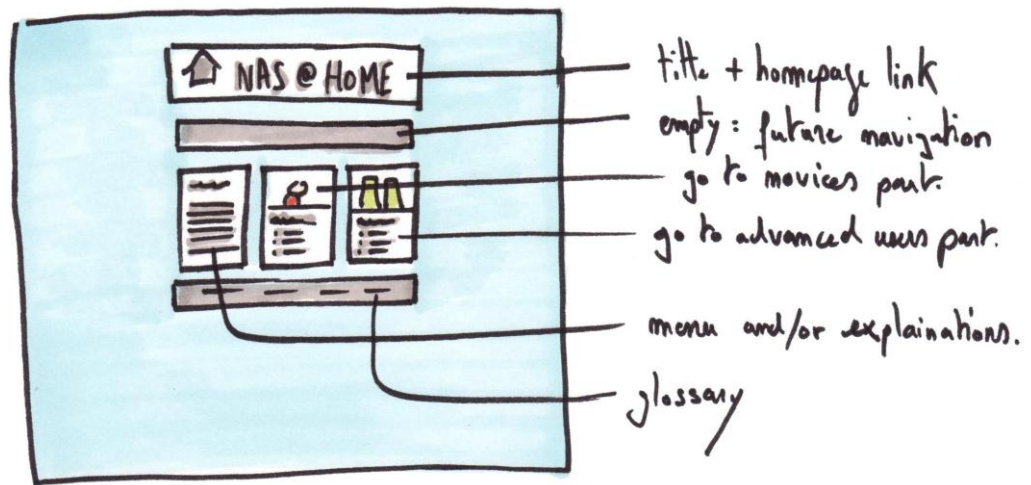 NAS @ HOME
title + homepage link
empty : future navigation
go to novices part.
go to advanced users part.
menu and/or explainations.
glossary